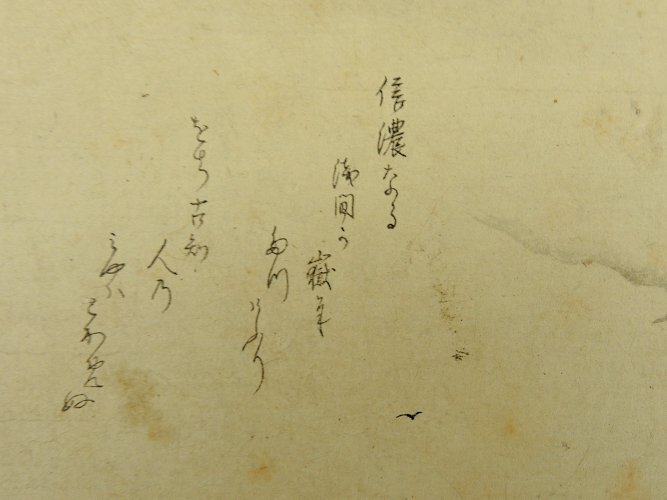 信濃なる
浅間か
嶽に
たつけふり
をちこち
人の
みやは
とかめぬ